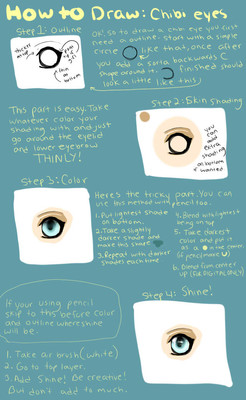 How to Draw: Chibi eyes
Step 1: Outline
OK, so to draw a chibi eye you first
need a outline. start with a simple
circle like that, once after
you add a sorta backwords C
shape around it. finished should
look a little like this
This part is easy. Take
whatever color your
shading with and just
go around the eyelid
and lower eyebrow
THINLY!
Step 2: Skin shading
you can
add extra
shading
on bottom if
wanted
Step 3: Color
Heres the tricky part. You can
use this method with pencil too.
1. Put lightest shade on
bottom.
2. Take a slightly
darker shade and
make this shape
3. Repeat with darker
shades each time
4. Blend with lightest
being on top
5. Take darkest
color and put it
as a in the center
(if pencil more )
6. Darken from center
up (FOR DIGITAL ONLY)
Step 4: Shine!
If your using pencil
skip to this before color
and outline where shine
will be.
1. Take airbrush (white)
2. Go to top layer.
3. Add Shine! Be creative!
But dont add to much.